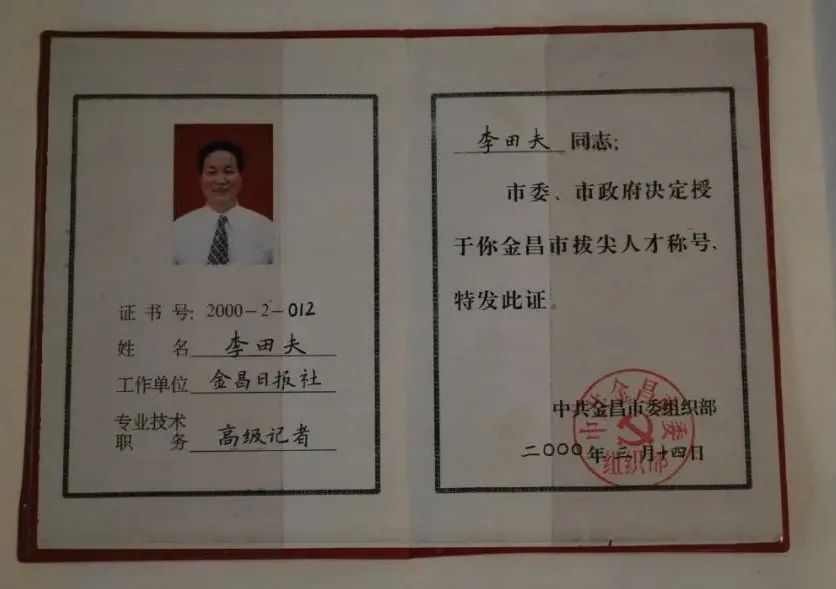 证书号: 2000-2-012
姓名 李田夫
工作单位 金昌日报社
专业技术
职务 高级记者
李田夫 同志:
市委、市政府决定授
于你金昌市拔尖人才称号、
特发此证
中共金昌市委组织部
二000年三月十四日
中共金昌市委
组织部